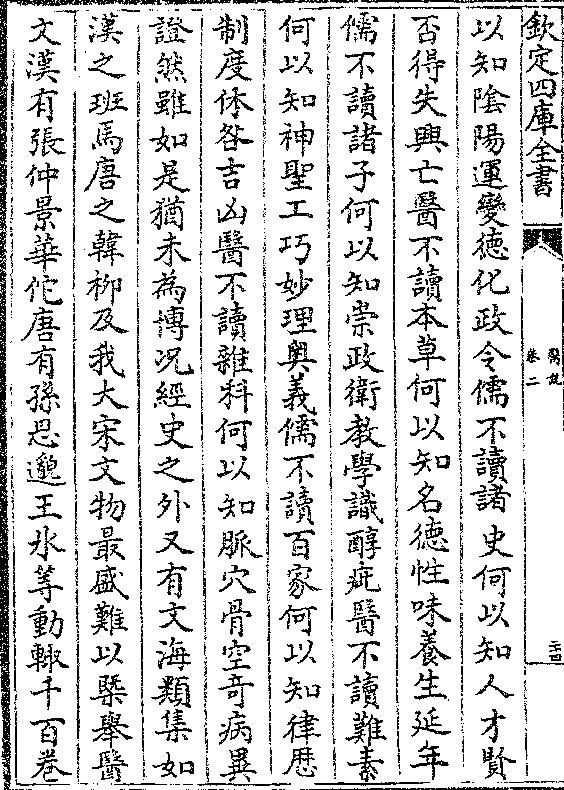 欽定四庫全書
醫說
卷二
二十四
以知陰陽運變德化政令儒不讀諸史何以知人才賢
否得失興亡醫不讀本草何以知名德性味養生延年
儒不讀諸子何以知崇政衛教學識醇疵醫不讀難素
何以知神聖工巧妙理奥義儒不讀百家何以知律厯
制度休咎吉凶醫不讀雜科何以知脈穴骨空竒病異
證然雖如是猶未為博况經史之外又有文海類集如
漢之班馬唐之韓柳及我大宋文物最盛難以槩舉醫
文漢有張仲景華佗唐有孫思邈王冰等動輙千百卷